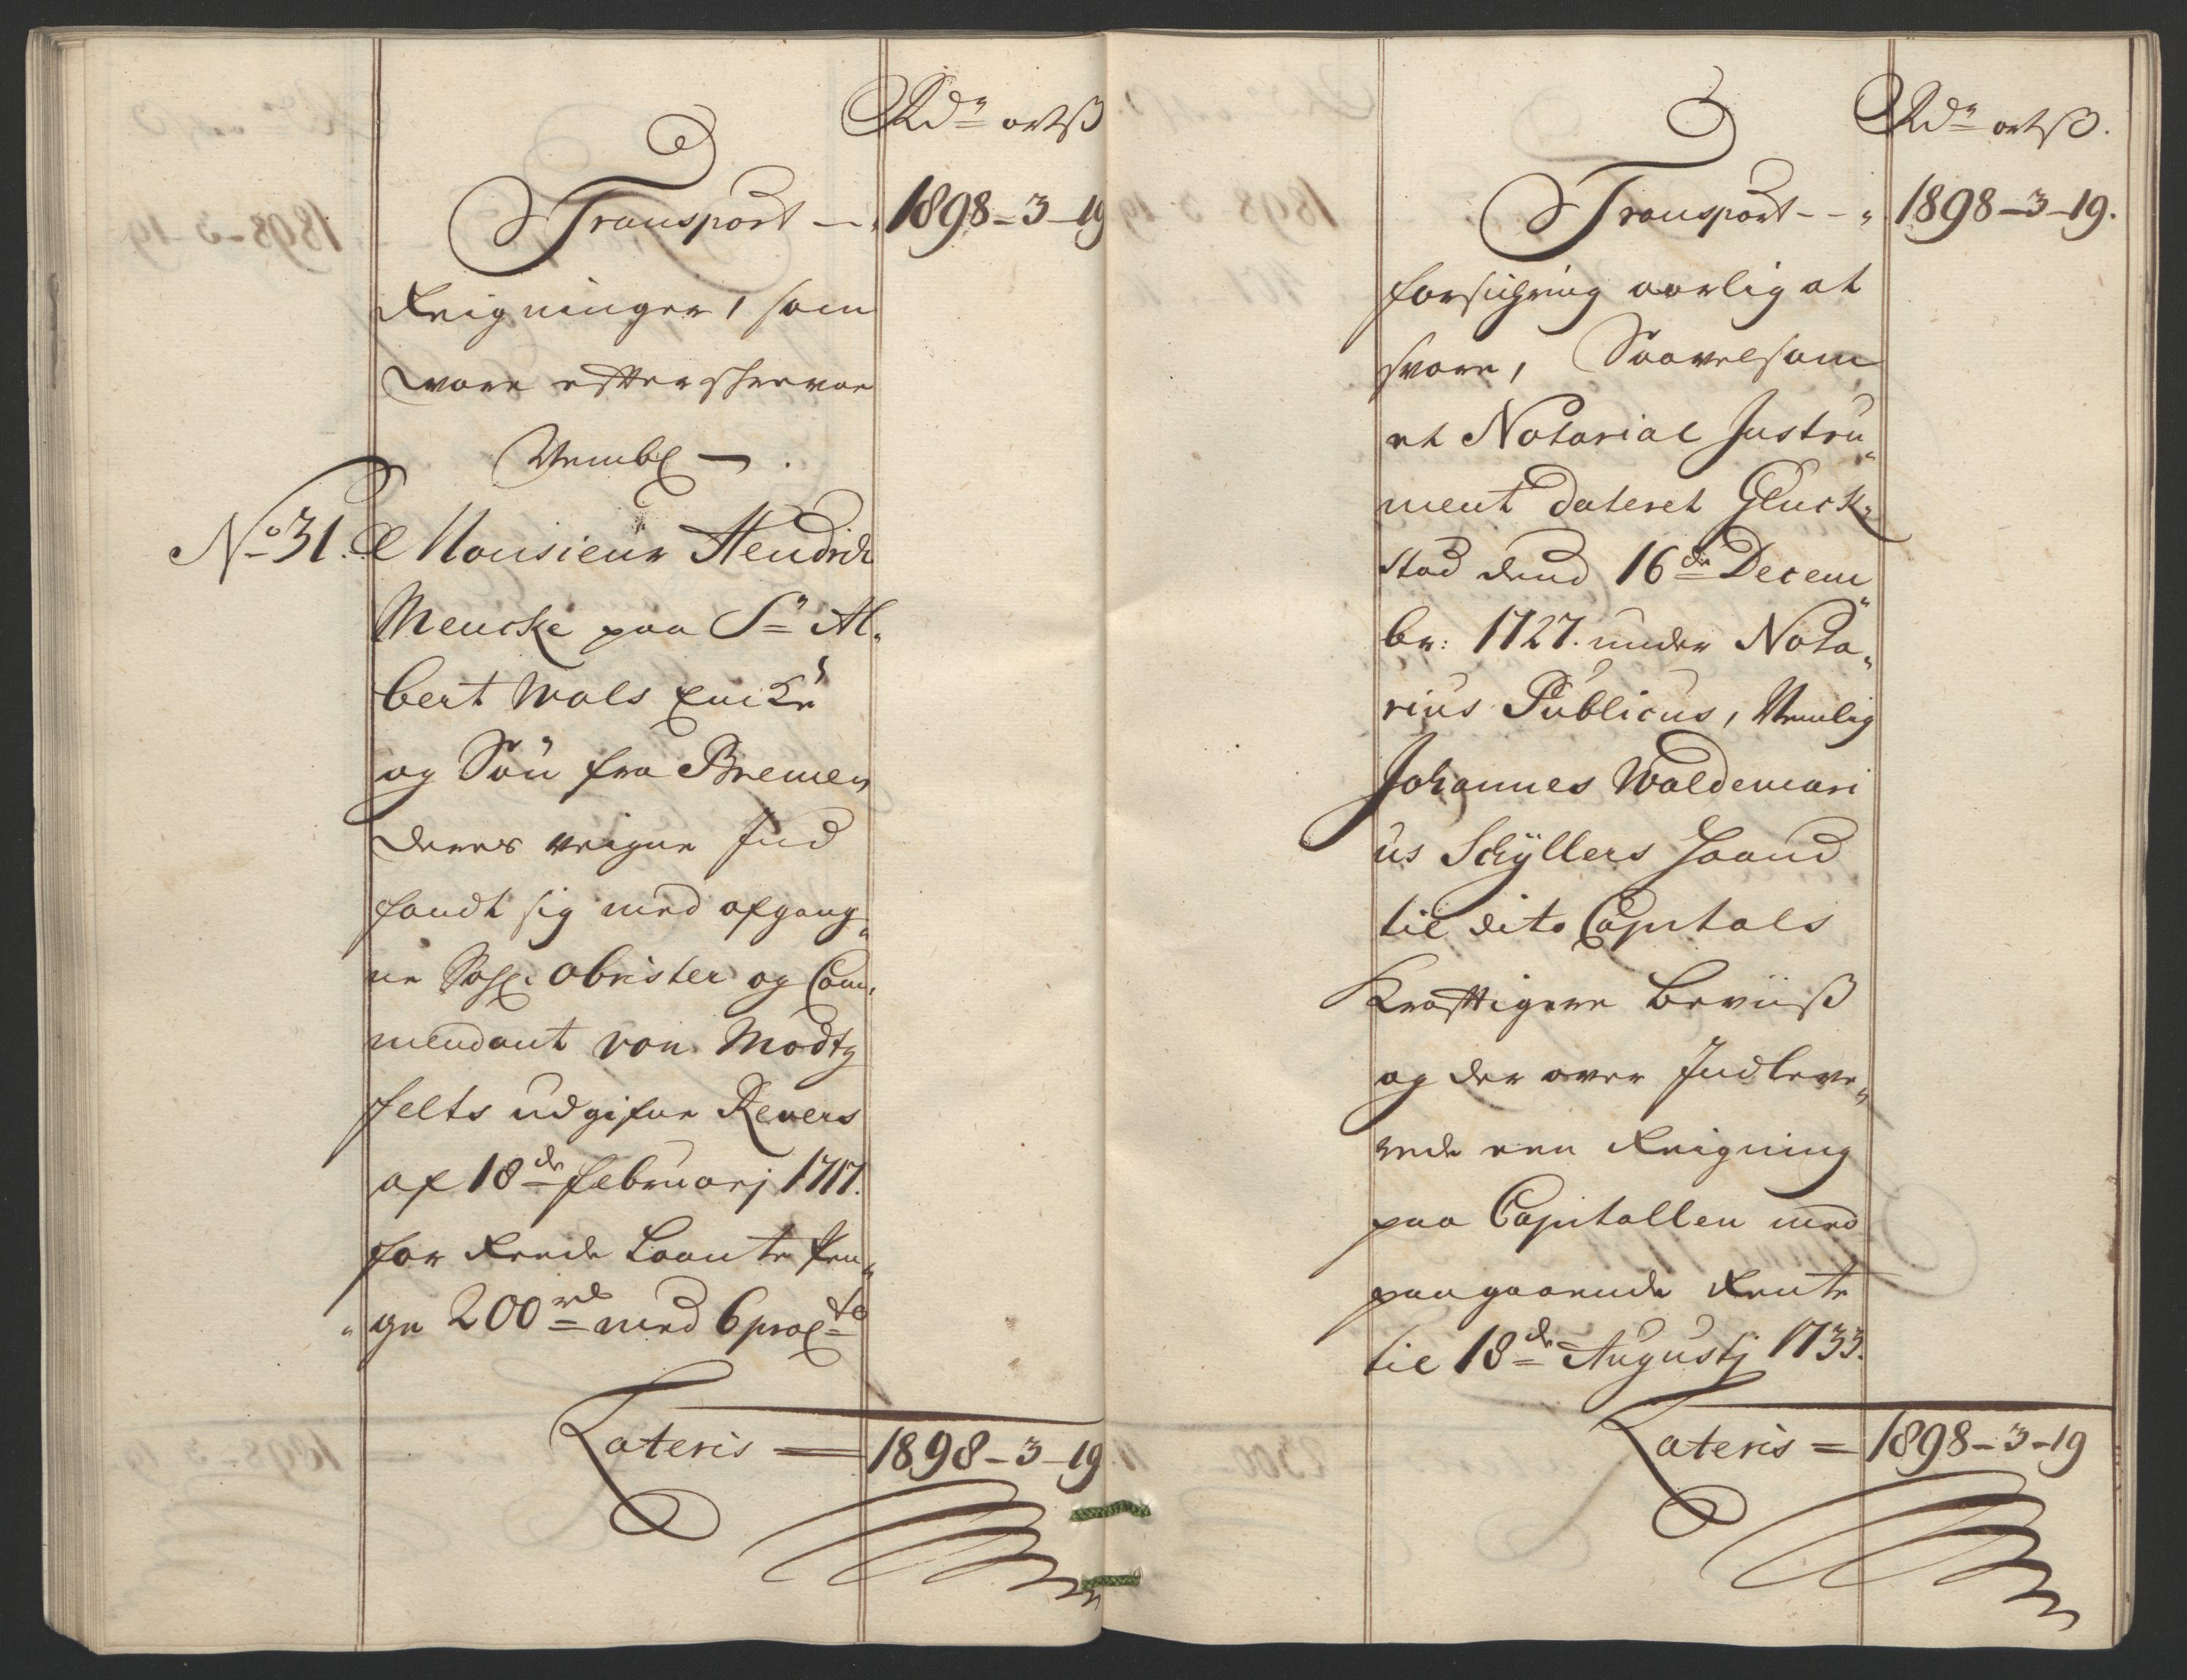 Rdr ort ß
Transport — 1898 – 3 – 19
Reigninger, som
vare efterskrevne
Nembl: —
No 31. Monsieur Hendrich
Mencke paa Sr Al„
bert Wols Encke
og Søn fra Bremen
deres veigne Ind
fandt sig med afgang„
ne Sahl: Obrister og Com„
mendant von Modtz
felts udgifne Revers
af 18de Februarj 1717.
for Reede Laante Pen„
ge 200 rd med 6 proCto
Lateris = 1898 – 3 – 19
Rdr ort ß.
Transport – – 1898 – 3 – 19.
forsichring aarlig at
svare, Saavelsom
et Notarial Instru„
ment dateret Gluck„
stad dend 16de Decem„
br: 1727. under Nota„
rius Publicus, Nemlig
Johannes Waldemari
us Schÿllers Haand
til dito Capitals
Kraftigere Beviiß
og der over Indleve„
rede een Reigning
paa Capitallen med
paagaaende Rente
til 18de Augustj 1733.
Lateris = 1898 – 3 – 19